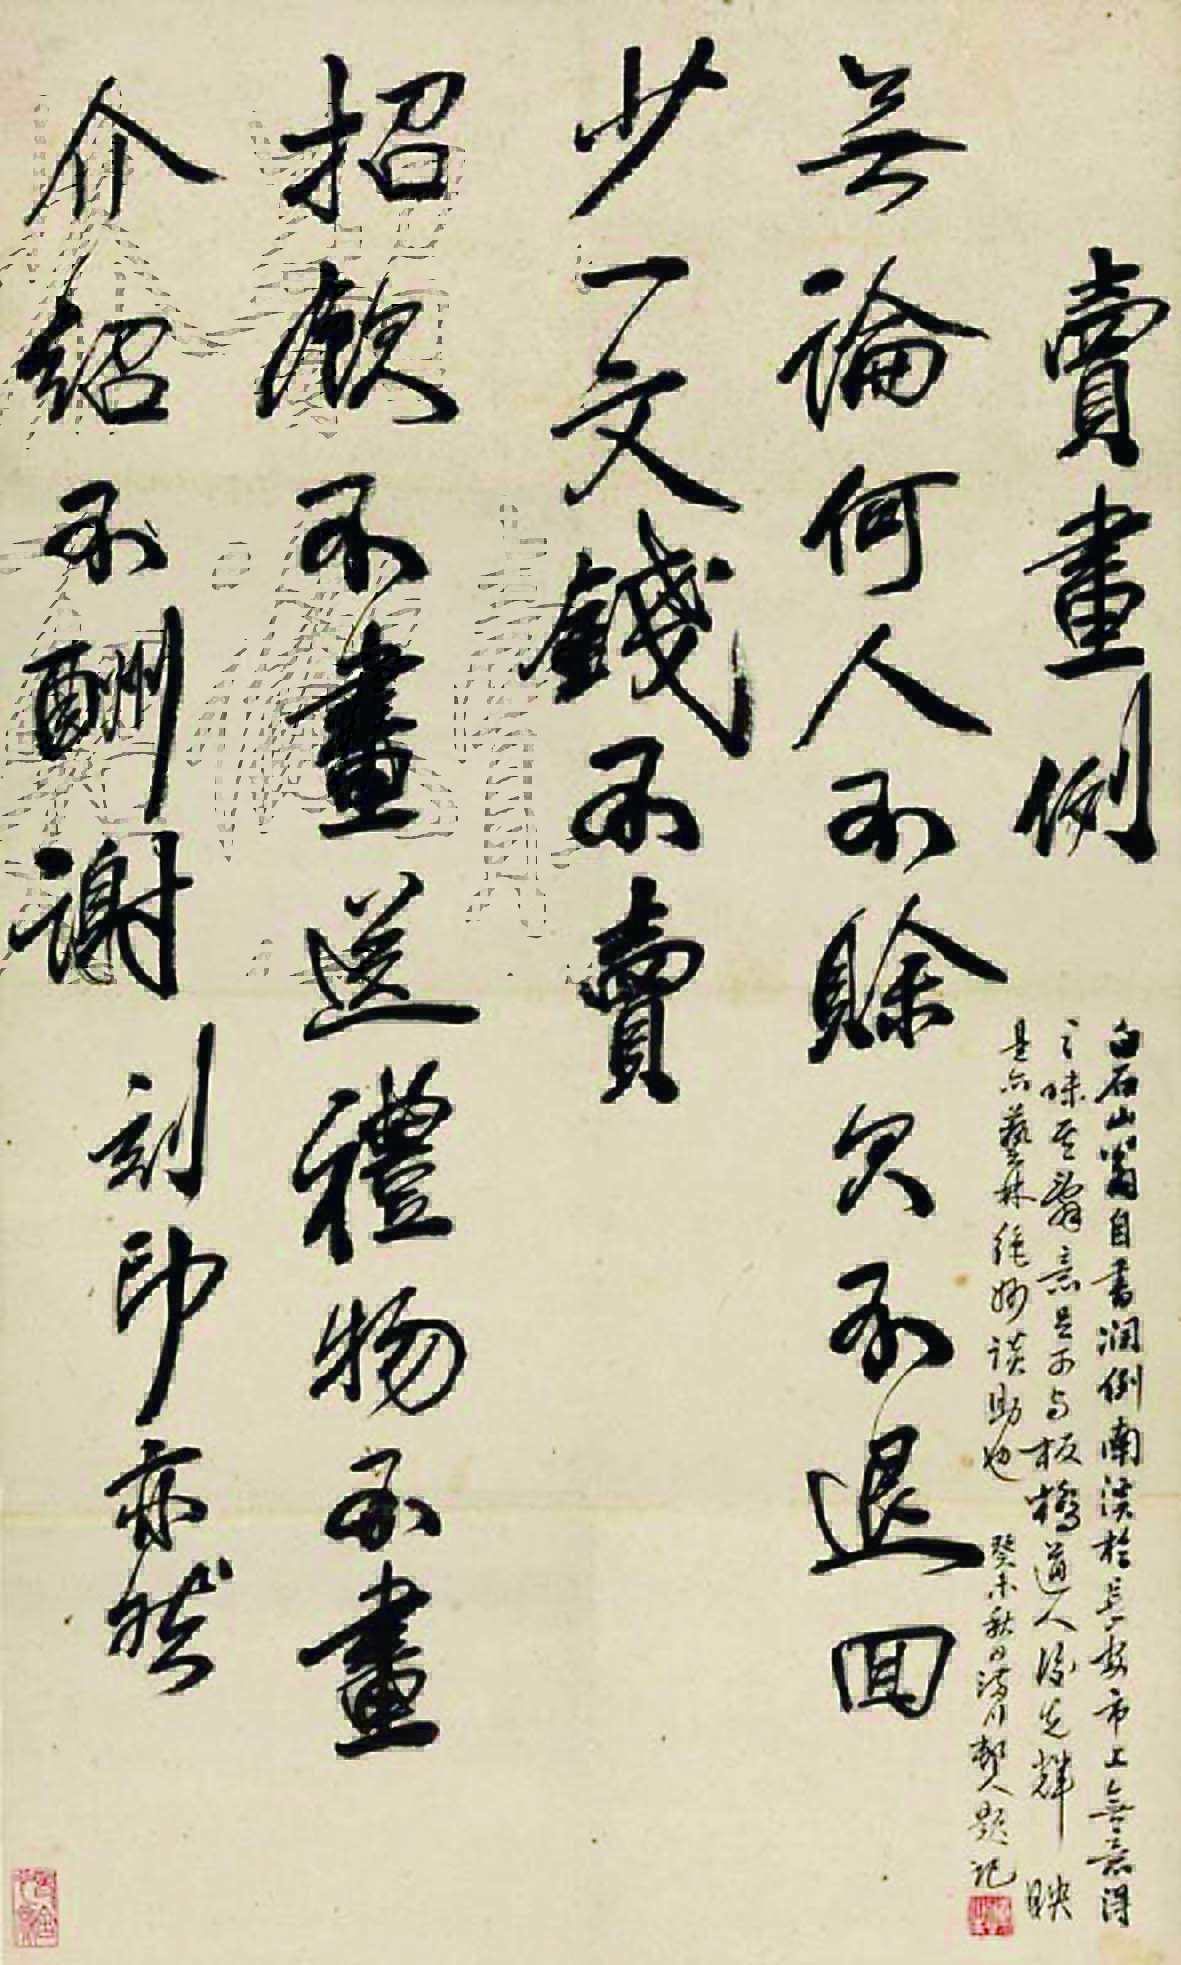 賣畫例
無論何人不賒欠不退回
少一文錢不賣
招飲不畫送禮物不畫
介紹不酬謝刻印亦然
白石山翁自書潤例南漢於長安市上無意得
之味其辭意足可與板橋道人後先輝映
是亦藝林絕妙談助也
癸未秋日
題記